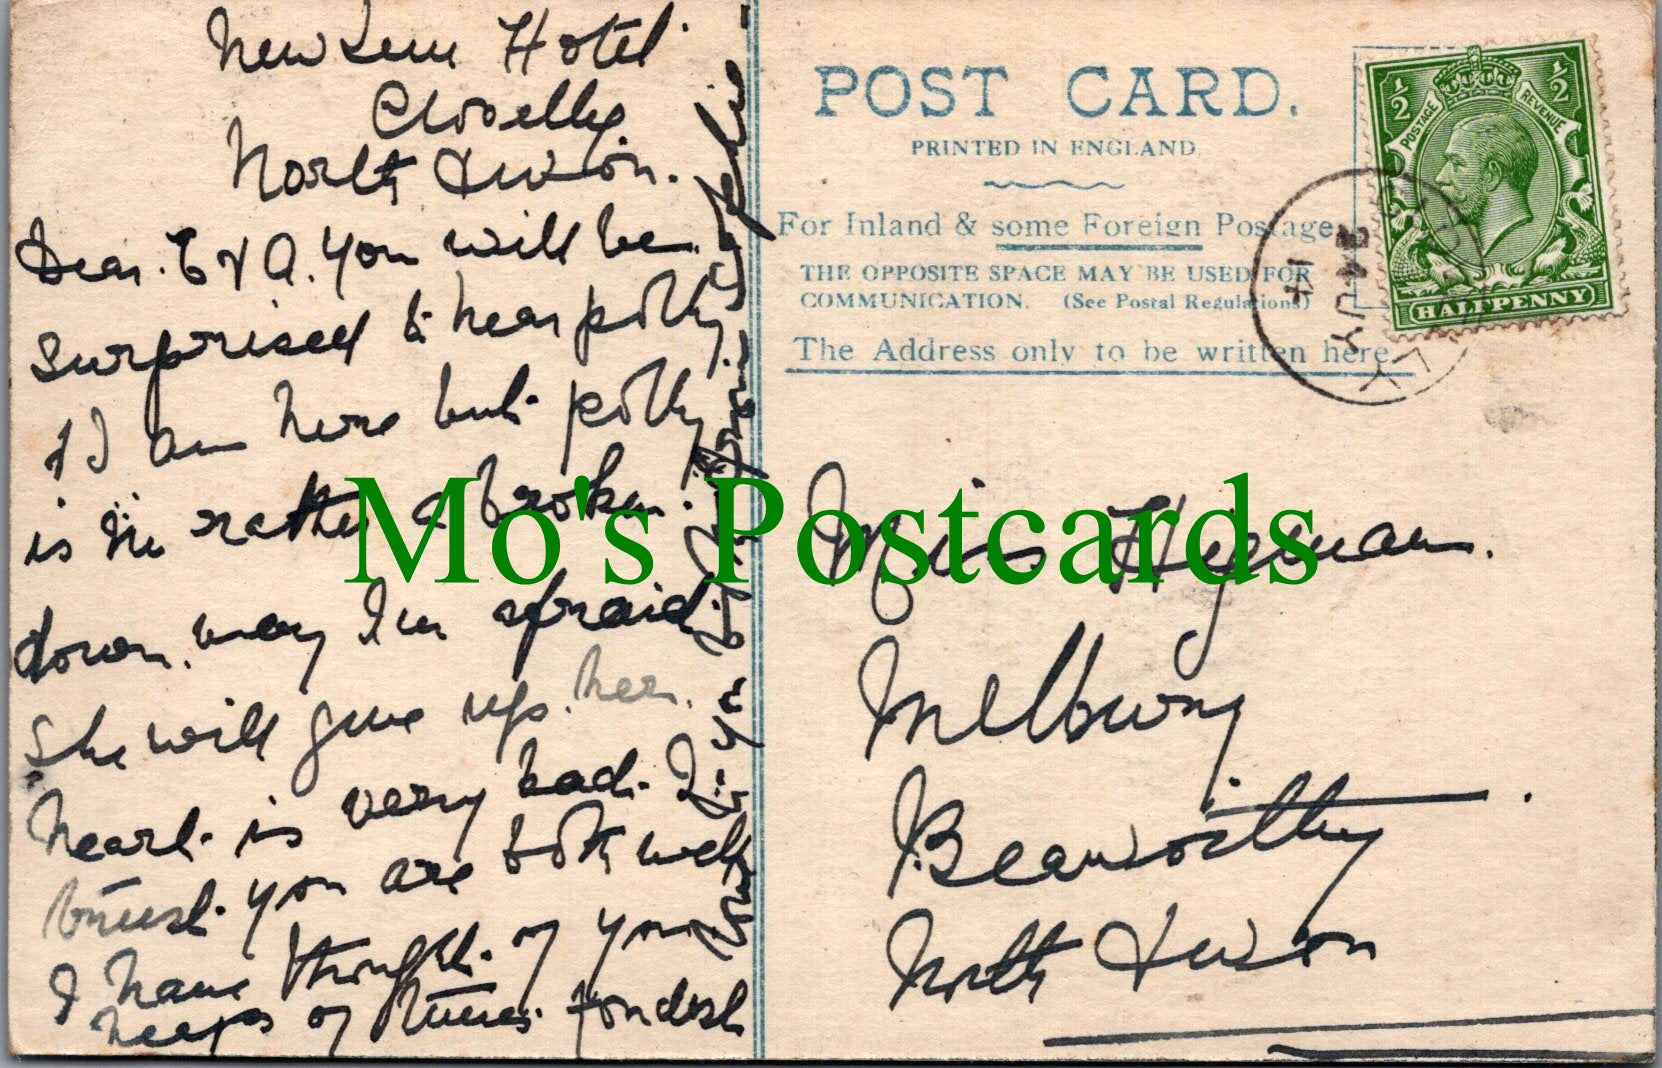 New Inn Hotel
Clovelly
North Devon.
Dear. E & A. You will be
surprised to hear polly
& I am here but polly
is in rather a broken
down way I'm afraid
she will give up. her
heart is very bad. I
trust you are both well
I have thought of you
heaps of times. fondest
POST CARD.
PRINTED IN ENGLAND
For Inland & some Foreign Postage
THE OPPOSITE SPACE MAY BE USED FOR
COMMUNICATION. (See Postal Regulations)
The Address only to be written here.
½ ½
POSTAGE REVENUE
HALFPENNY
Miss
Melbury
Beaworthy
North Devon
Mo's Postcards